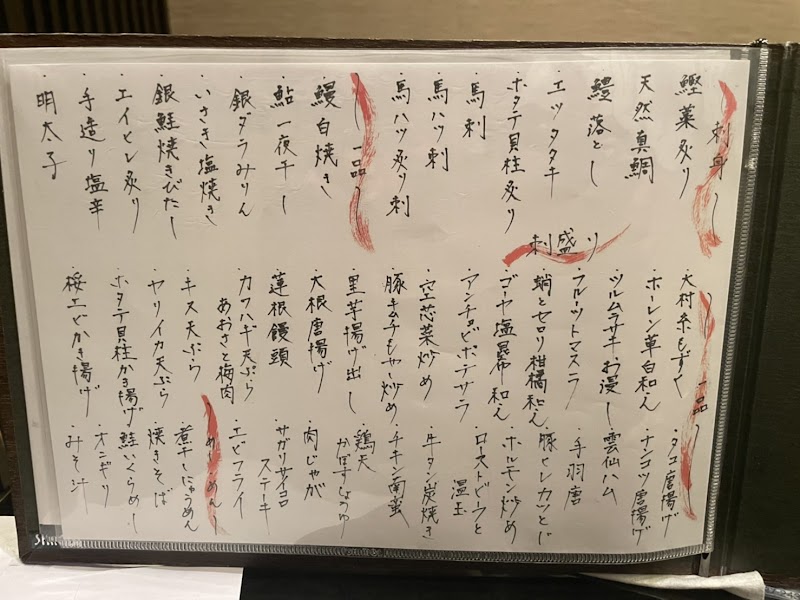 刺身
・鰹藁炙り
・天然真鯛
・鱧落とし
・エツタタキ
・ホタテ貝柱炙り
・馬刺
・馬ハツ刺
・馬ハツ炙り刺
刺盛り
一品
・鰻白焼き
・鮎一夜干し
・銀ダラみりん
・いさき塩焼き
・銀鮭焼きびたし
・エイヒレ炙り
・手造り塩辛
・明太子
一品
・大村糸もずく
・ホーレン草白和え
・ツルムラサキお漫し
・フルットマスラ
・蛸とセロリ柑橘和え
・ゴーヤ塩昆布和え
・アンチョビポテサラ
・空芯菜炒め
・豚キムチもやし炒め
・里芋揚げ出し
・大根唐揚げ
・蓮根饅頭
・カワハギ天ぷら
あおさと梅肉
・キス天ぷら
・ヤリイカ天ぷら
・ホタテ貝柱かき揚げ
・桜エビかき揚げ
・タコ唐揚げ
・ナンコツ唐揚げ
・雲仙ハム
・手羽唐
・豚ヒレカツとじ
・ホルモン炒め
・ローストビーフと
温玉
・牛タン炭焼き
・チキン南蛮
・鶏天
かぼすしょうゆ
・肉じゃが
・サガリサイコロ
ステーキ
・エビフライ
めしめん
・煮干しにゅうめん
・焼きそば
・鮭いくらめし
・オニギリ
・みそ汁